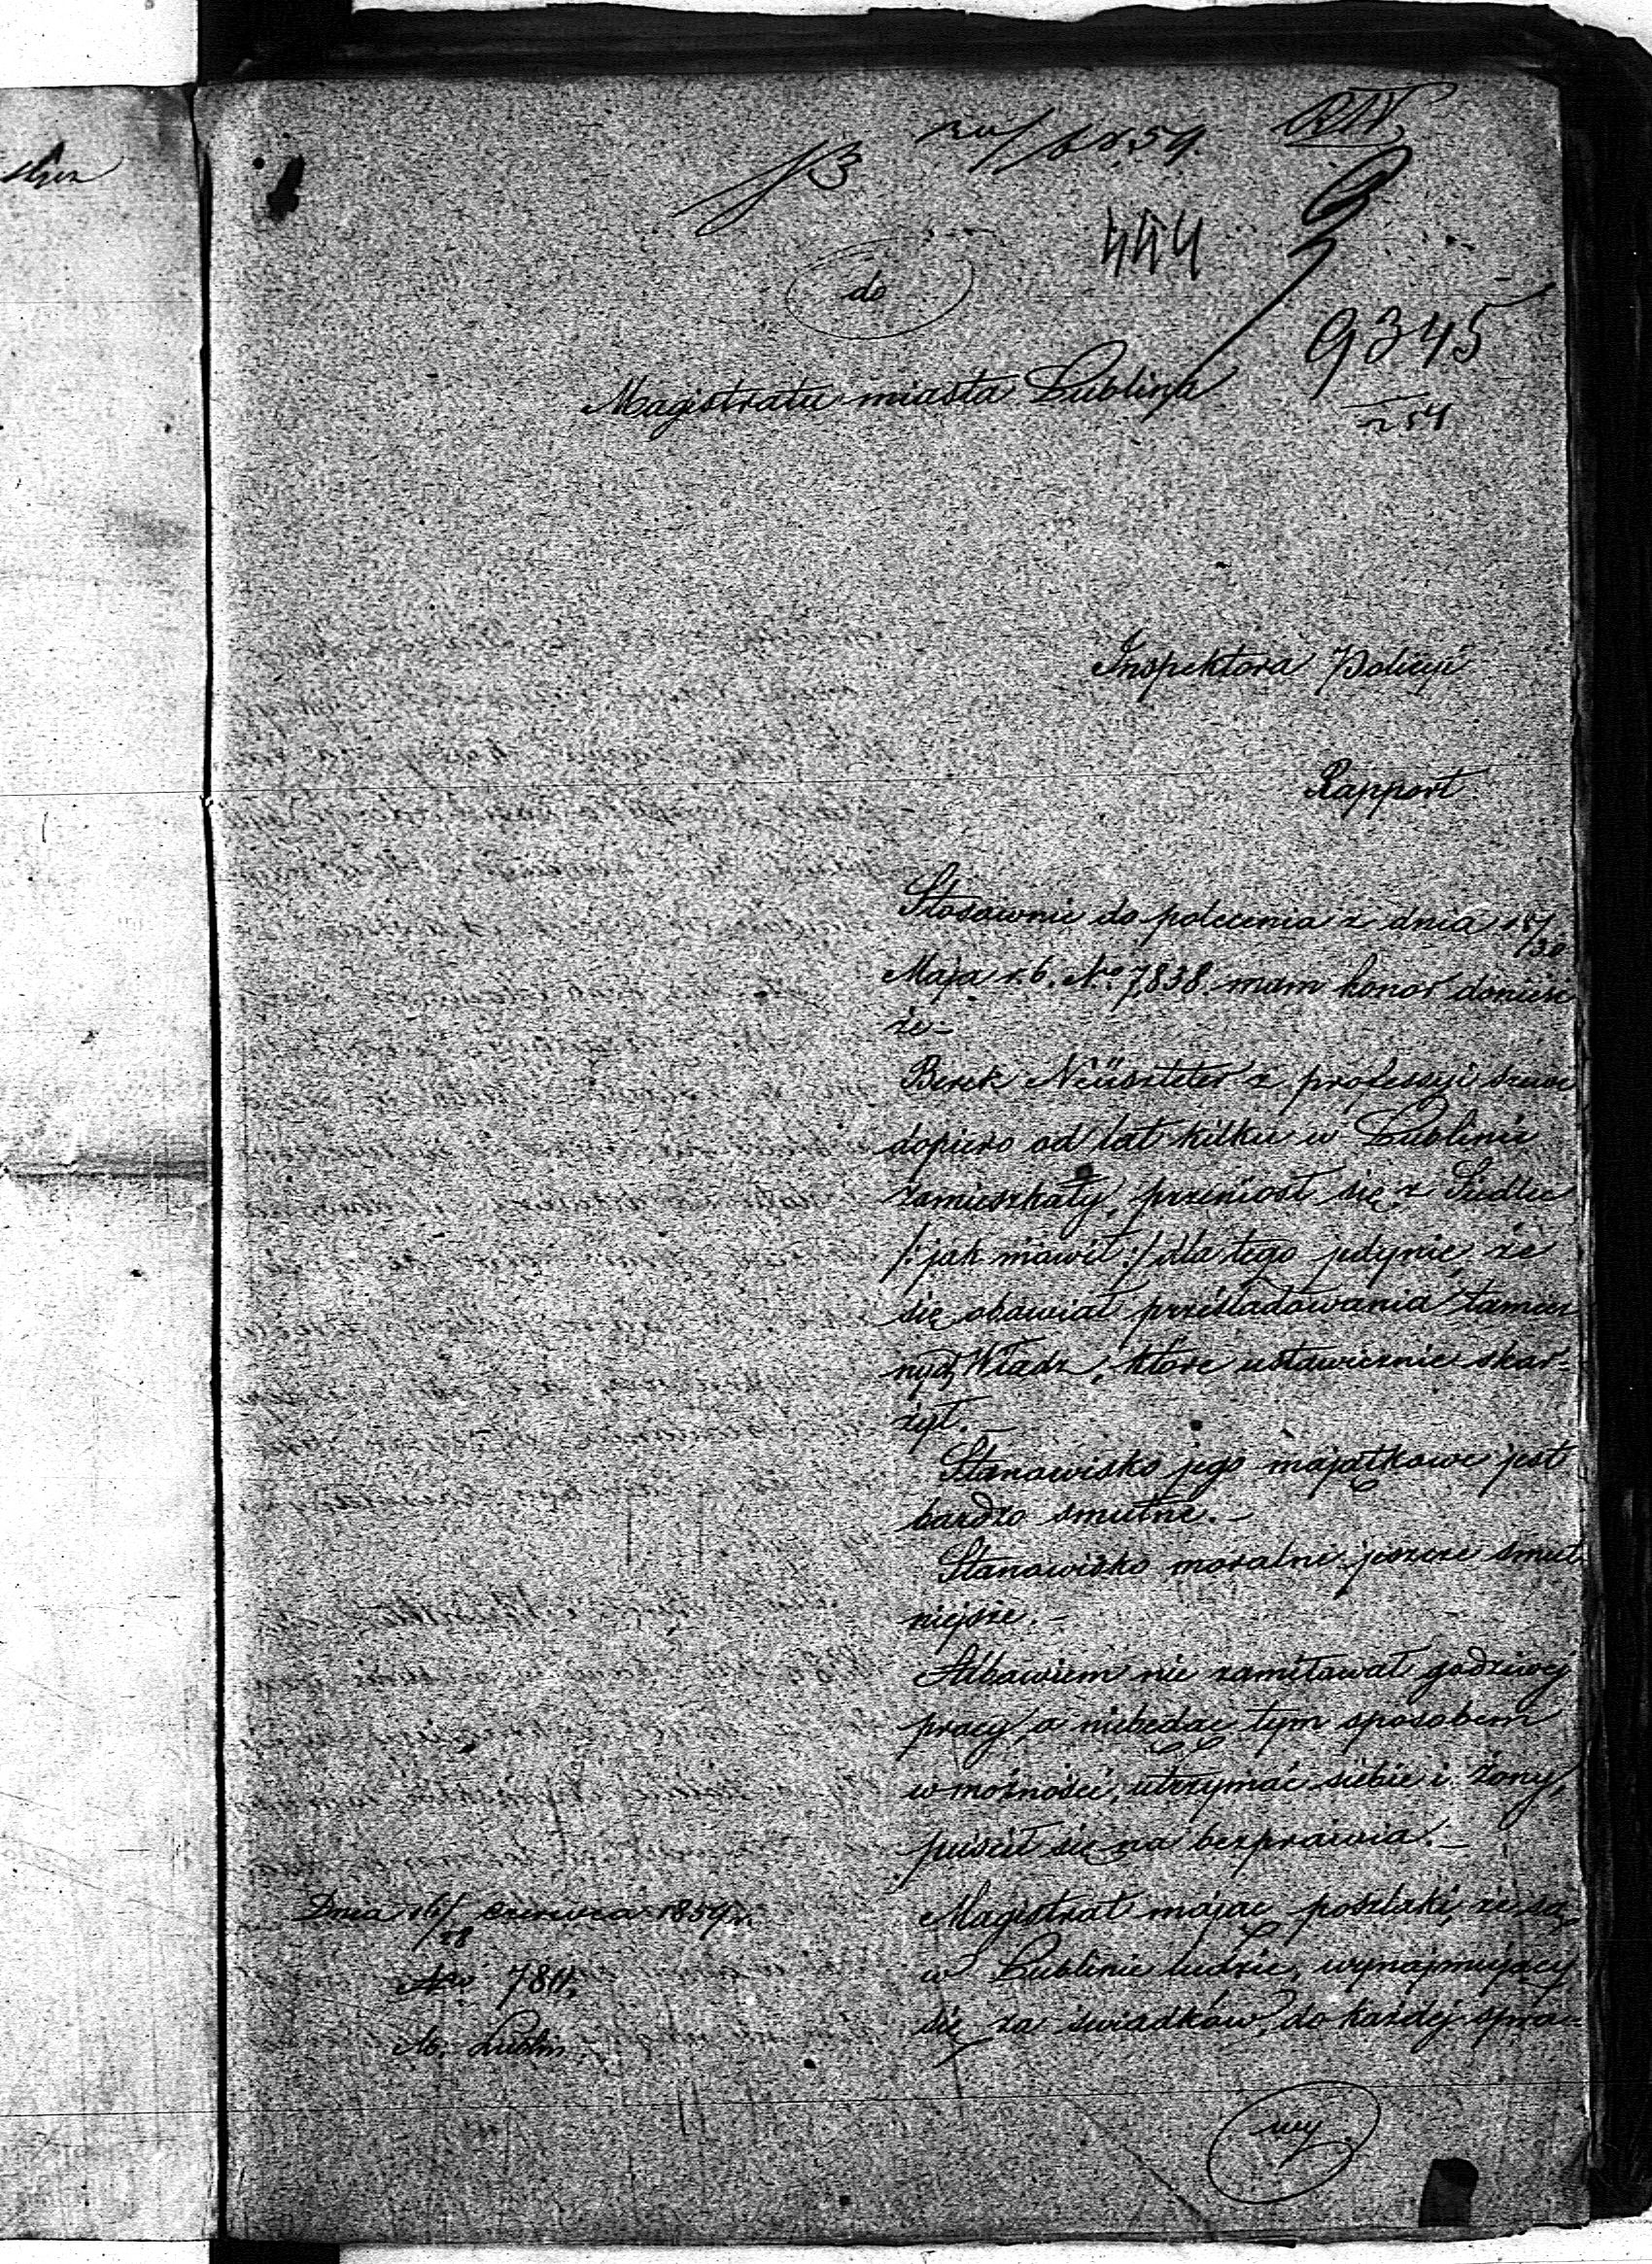 444
do
9345
Magistratu miasta Lublina
Inspektora Policyi
Rapport
Stosownie do polecenia z dnia 18/30
Maja r.b. No. 7838. mam honor donieść
że –
Berek Neüszteter z professyi szewc
dopiero od lat kilku w Lublinie
zamieszkały, przeniosł się z Siedlec
/: jak mówił :/ dla tego jedynie, że
się obawiał prześladowania tamecz
nych Władz, które ustawicznie skar-
żył. –
Stanowisko jego majątkowe jest
bardzo smutne. –
Stanowisko moralne jeszcze smut
niejsze. –
Albowiem nie zamiłował godziwej
pracy, a niebędąc tym sposobem
w możności, utrzymać siebie i Żony,
puścił się na bezprawia. –
Magistrat mając poszlaki, że są
w Lublinie ludzie, wynajmujący
się za świadków, do każdej spra-
wy.
Dnia 16/28 Czerwca 1859 r.
No. 7811.
M. Lublin